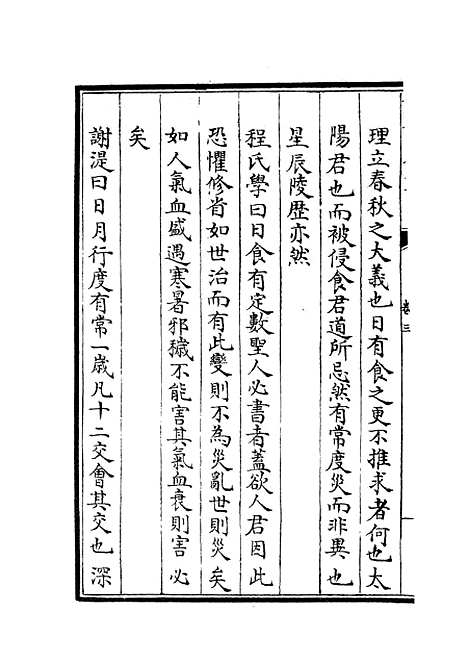 卷三
理立春秋之大義也日有食之更不推求者何也太
陽君也而被侵食君道所忌然有常度災而非異也
星辰陵歴亦然
程氏學曰日食有定數聖人必書者蓋欲人君因此
恐懼修省如世治而有此變則不為災亂世則災矣
如人氣血盛遇寒暑邪穢不能害其氣血衰則害必
矣
謝湜曰日月行度有常一歲凡十二交會其交也深